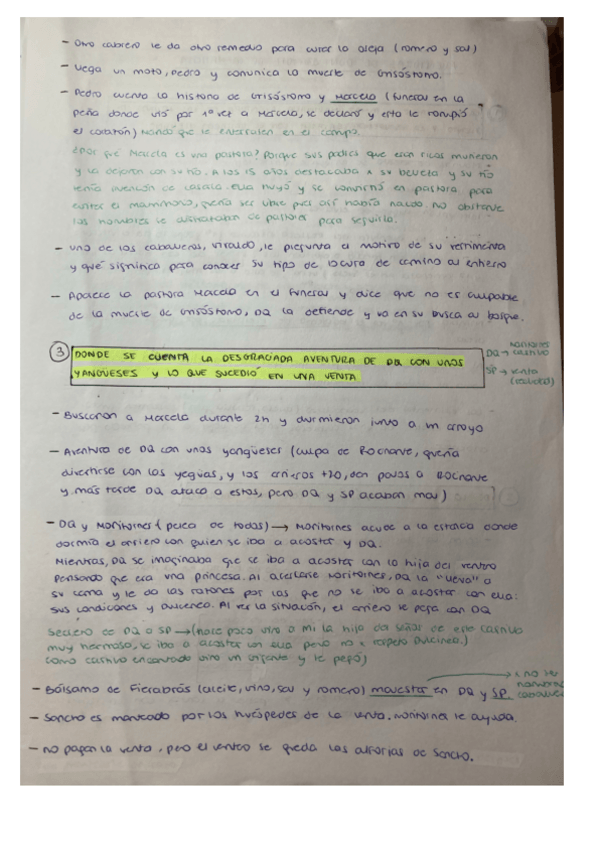 - Otro cabrero le da otro remedio para curar la oreja (romero y sal)
- Llega un moto, Pedro y comunica la muerte de Grisóstomo.
- Pedro cuenta la historia de Grisóstomo y Marcela (funeral en la
peña donde vió por 1ª vez a Marcela, se declaró y esta le rompió
el corazón) Mandó que le enterrasen en el campo.
¿Por qué Marcela es una pastora? Porque sus padres que eran ricos murieron
y la dejaron con su tío. A los 15 años destacaba x su belleza y su tío
tenía intención de casarla. Ella huyó y se convirtió en pastora para
evitar el matrimonio, quería ser libre pues así había nacido. No obstante
los hombres se disfrazaban de pastores para seguirla.
- Uno de los caballeros, Vivaldo, le pregunta el motivo de su vestimenta
y qué significa para conocer su tipo de locura de camino al entierro
- Aparece la pastora Marcela en el funeral y dice que no es culpable
de la muerte de Grisóstomo, DQ la defiende y va en su busca al bosque.
3 DONDE SE CUENTA LA DESGRACIADA AVENTURA DE DQ CON UNOS
YANGÜESES Y LO QUE SUCEDIÓ EN UNA VENTA
Maritornes
DQ → castillo
SP → venta
(realidad)
- Buscaron a Marcela durante 2h y durmieron junto a un arroyo
- Aventura de DQ con unos yangüeses (culpa de Rocinante, quería
divertirse con las yeguas, y los arrieros +20, dan palos a Rocinante
y más tarde DQ atacó a estos, pero DQ y SP acaban mal)
- DQ y Maritornes (pelea de todos) → Maritornes acude a la estancia donde
dormía el arriero con quien se iba a acostar y DQ.
Mientras, DQ se imaginaba que se iba a acostar con la hija del ventero
pensando que era una princesa. Al acercarse Maritornes, DQ la "lleva" a
su cama y le da las razones por las que no se iba a acostar con ella:
sus condiciones y Dulcinea. Al ver la situación, el arriero se pega con DQ
Secreto de DQ a SP → (hace poco vino a mi la hija del señor de este castillo
muy hermosa, se iba a acostar con ella pero no x respeto Dulcinea.)
Como castillo encantado vino un gigante y le pegó)
x no ser
nombrado
caballero
- Bálsamo de Fierabrás (aceite, vino, sal y romero) malestar en DQ y SP.
- Sancho es manteado por los huéspedes de la venta. Maritornes le ayuda.
- No pagan la venta, pero el ventero se queda las alforjas de Sancho.